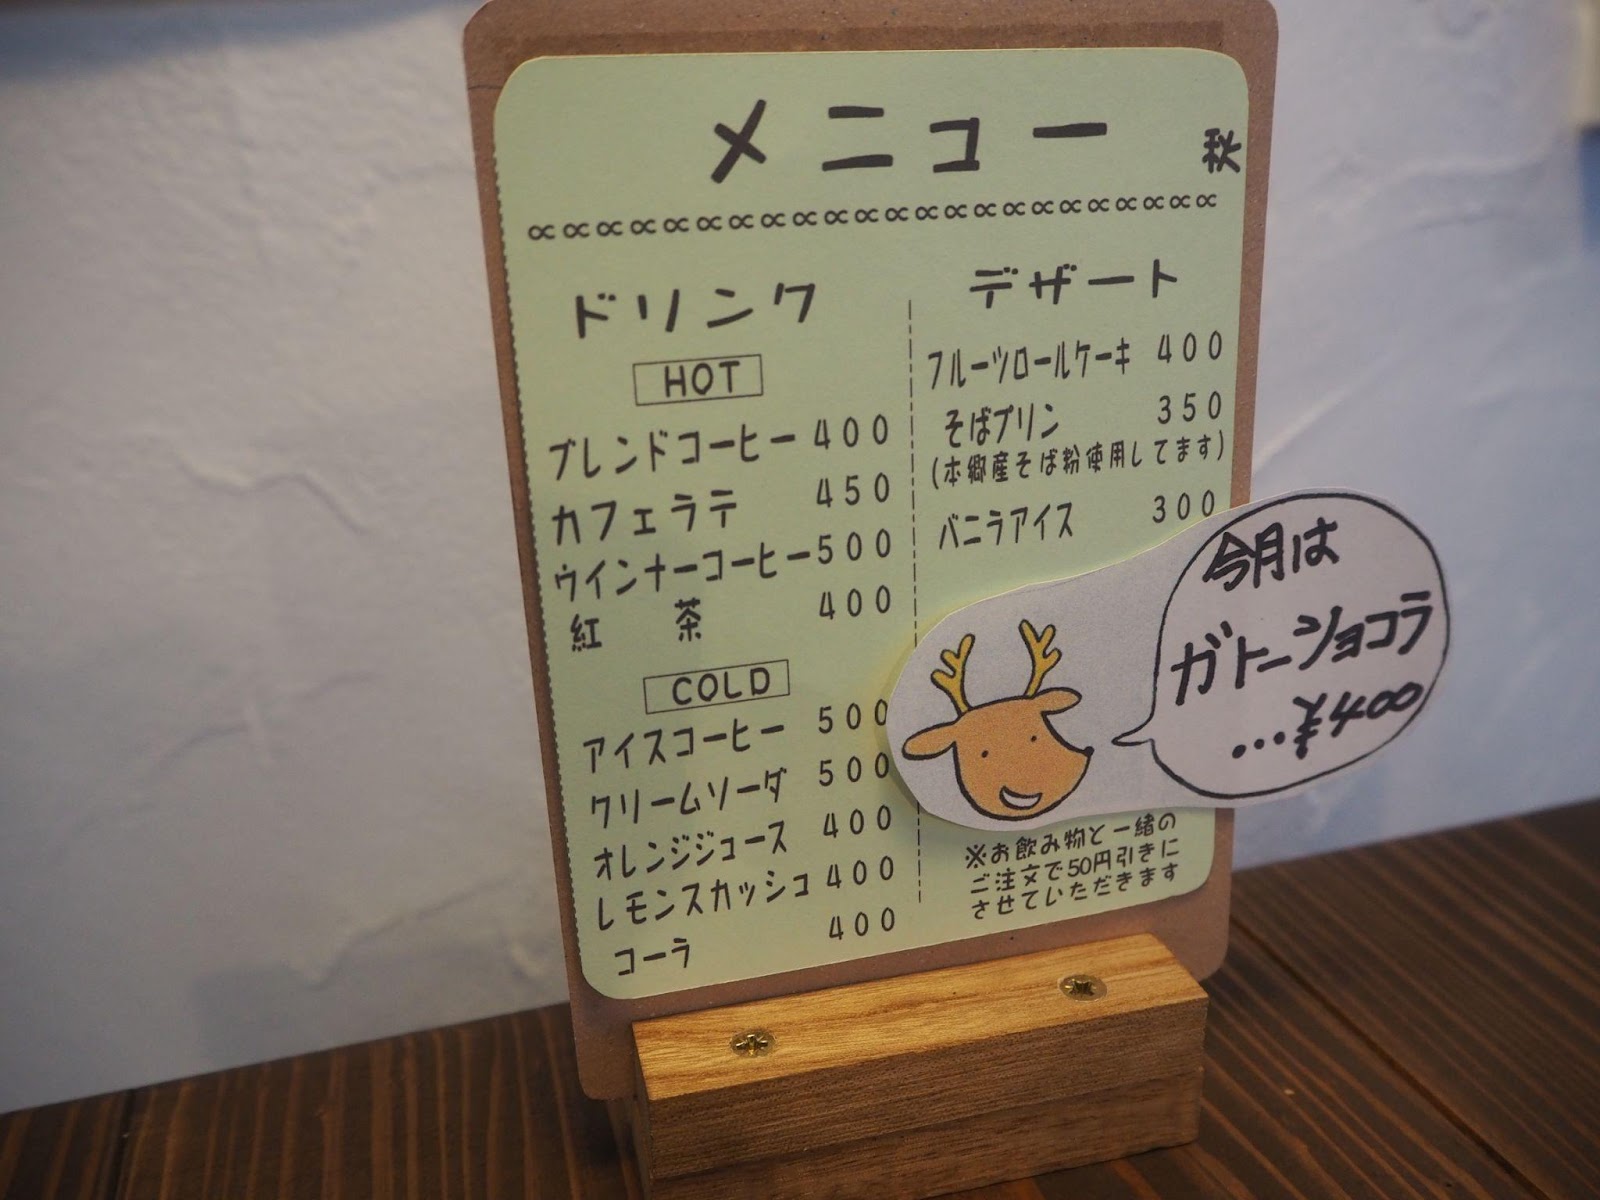 メニュー 秋
∝∝∝∝∝∝∝∝∝∝∝∝∝∝∝∝∝∝∝∝∝∝
ドリンク
HOT
ブレンドコーヒー 400
カフェラテ 450
ウインナーコーヒー 500
紅 茶 400
COLD
アイスコーヒー 500
クリームソーダ 500
オレンジジュース 400
レモンスカッシュ 400
コーラ 400
デザート
フルーツロールケーキ 400
そばプリン 350
(本郷産そば粉使用してます)
バニラアイス 300
今月は
ガトーショコラ
...¥400
※お飲み物と一緒の
ご注文で50円引きに
させていただきます